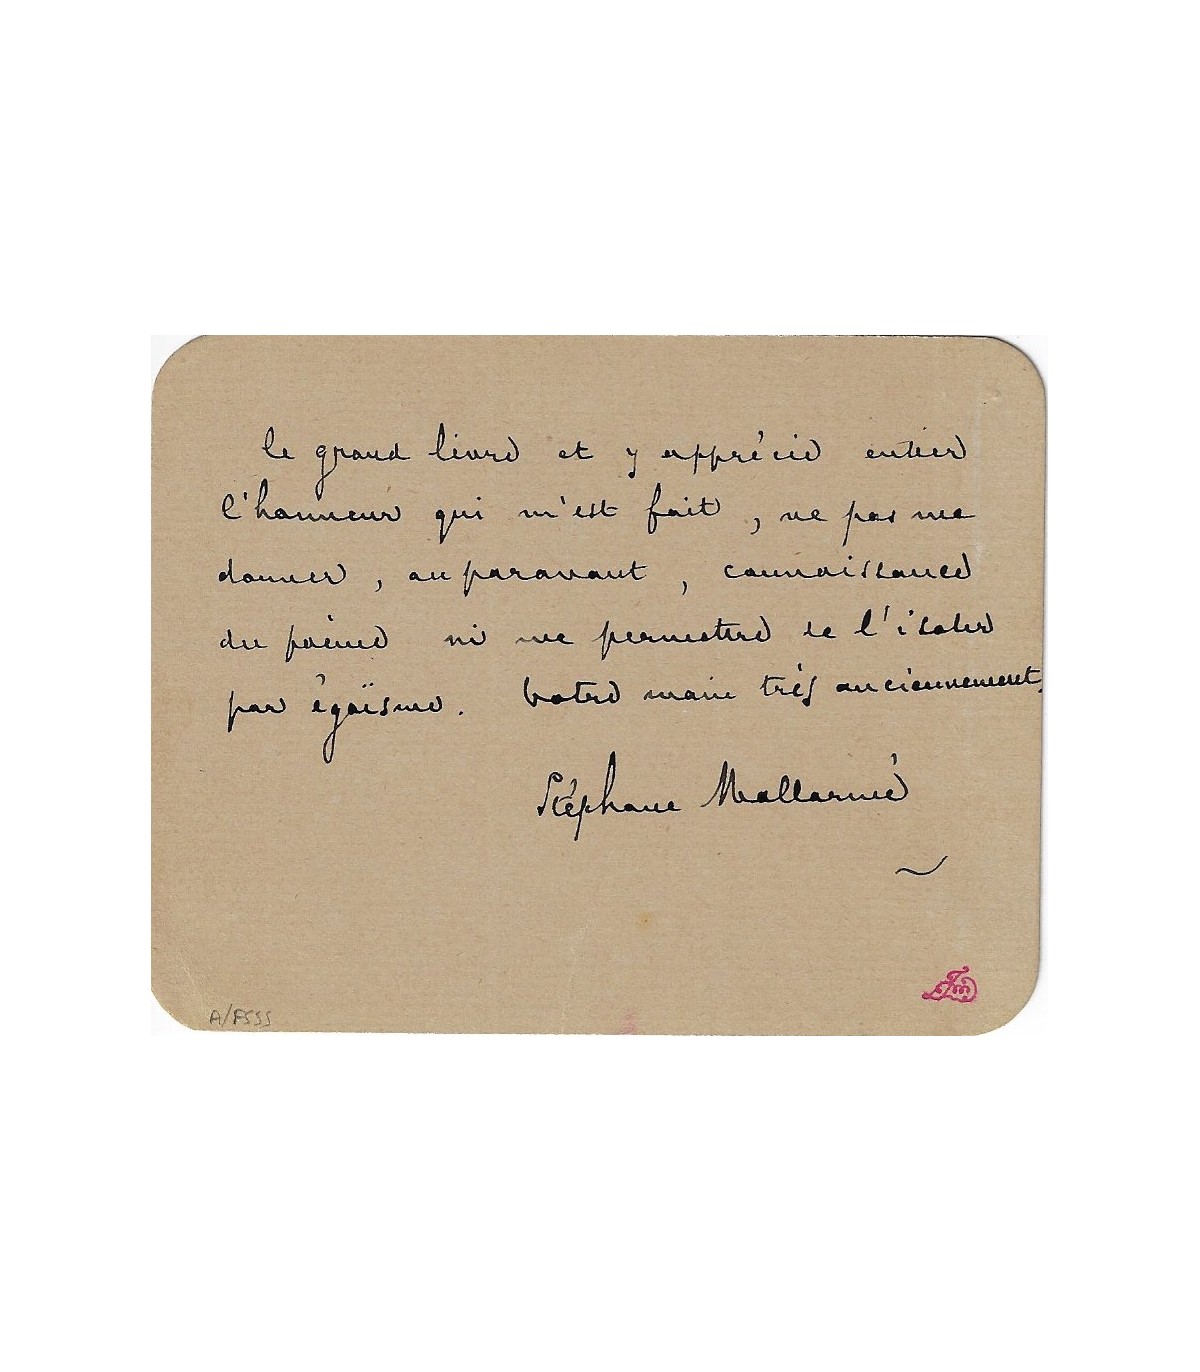 le grand livre et y apprécie entier
l'honneur qui m'est fait, ne pas me
donner, auparavant, connaissance
du poème ni me permettre de l'isoler
par égoïsme. Votre main très anciennement,
Stéphane Mallarmé